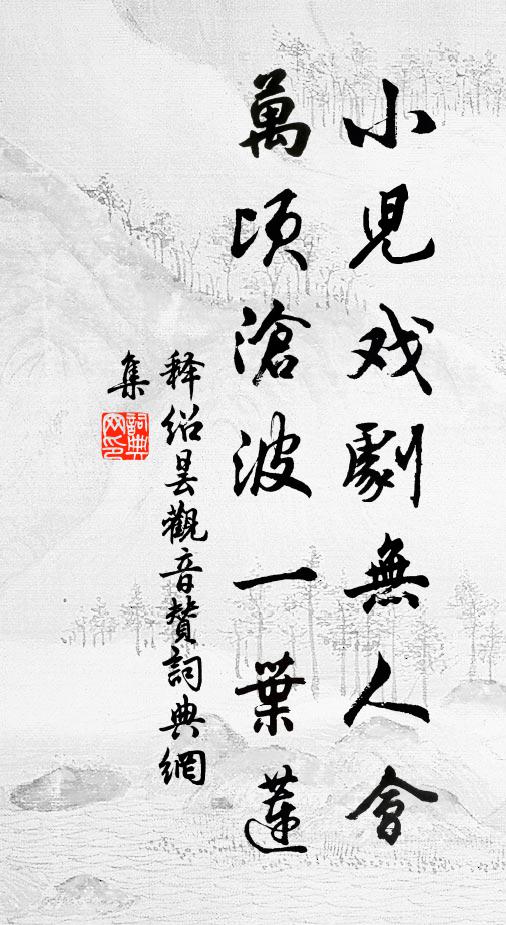 小児戏劇無人會
萬頃滄波一葉蓮
释绍昙觀音賛詞典網
集
詞典網印